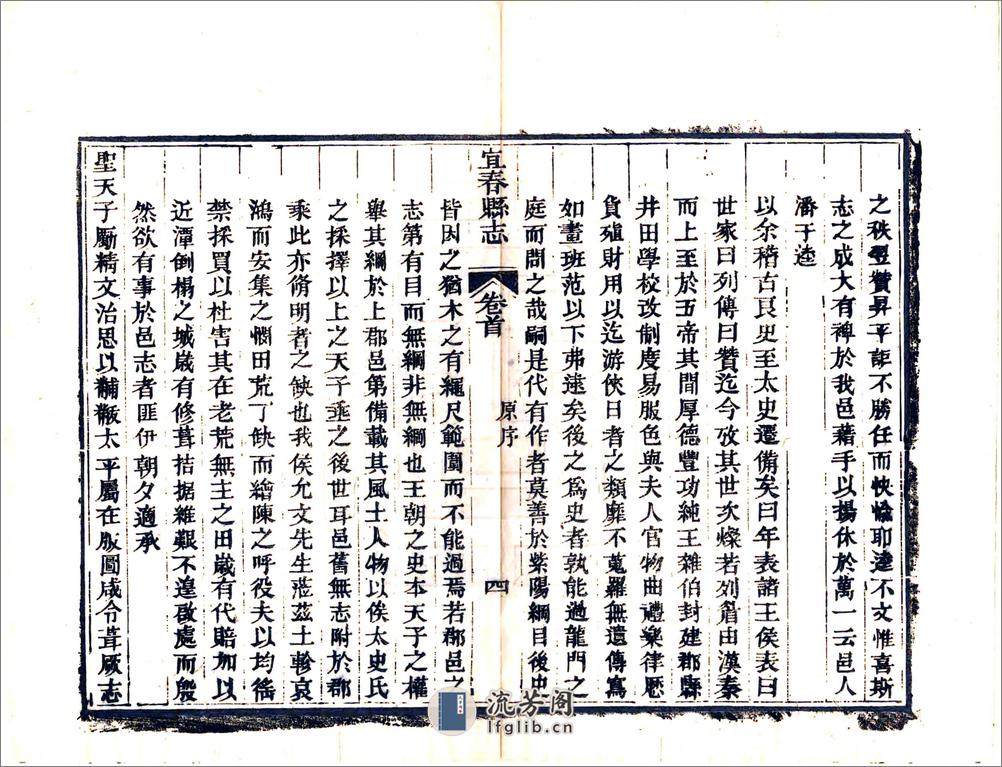 之秩翌贊昇平詎不勝任而快愉耶逵不文惟喜斯
志之成大有裨於我邑藉手以揚休於萬一云邑人
潘于逵
以余稽古良史至太史遷備矣曰年表諸王侯表曰
世家曰列傳曰贊迄今攷其世次燦若列眉由漢秦
而上至於五帝其間厚德豐功純王雜伯封建郡縣
井田學校改制度易服色與夫人官物曲禮樂律厯
貨殖財用以迄游俠日者之類靡不蒐羅無遺傳寫
如畫班范以下弗遠矣後之爲史者孰能過龍門之
庭而問之哉嗣是代有作者莫善於紫陽綱目後史
宜春縣志
卷首
原序
四
皆因之猶木之有繩尺範圍而不能過焉若郡邑之
志第有目而無綱非無綱也王朝之史本天子之權
舉其綱於上郡邑第備載其風土人物以俟太史氏
之採擇以上之天子垂之後世耳邑舊無志附於郡
乘此亦脩明者之缺也我侯允文先生蒞茲土軫哀
鴻而安集之憫田荒丁缺而繪陳之呼役夫以均徭
禁採買以杜害其在老荒無主之田歲有代賠加以
近潭倒榻之城歲有修葺拮据維艱不遑啟處而殷
然欲有事於邑志者匪伊朝夕適承
聖天子勵精文治思以黼黻太平屬在版圖咸令葺厥志
流芳阁
lfglib.cn